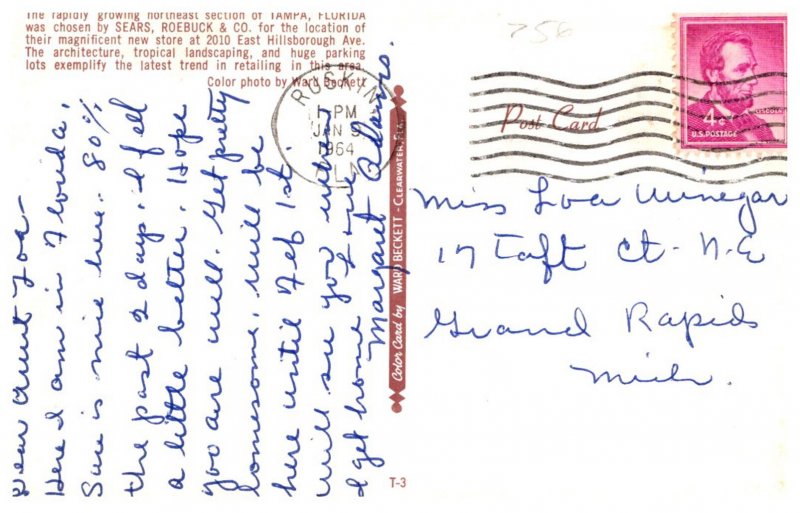 The rapidly growing northeast section of TAMPA, FLORIDA
was chosen by SEARS, ROEBUCK & CO. for the location of
their magnificent new store at 2010 East Hillsborough Ave.
The architecture, tropical landscaping, and huge parking
lots exemplify the latest trend in retailing in this area.
Color photo by Ward Beckett
Dear Aunt Loa—
Here I am in Florida,
Sure is nice here. 80%
the past 2 days. I feel
a little better. Hope
you are well. Get pretty
lonesome. Will be
here until Feb 1st.
Will see you when
I get home. Love
Margaret Adams.
Color Card by WARD BECKETT - CLEARWATER, FLA.
T-3
756
RUSKIN
PM
JAN 9
1964
FLA
Post Card
LINCOLN
4¢
U.S. POSTAGE
Miss Loa Winegar
17 Taft Ct - N.E
Grand Rapids
Mich.